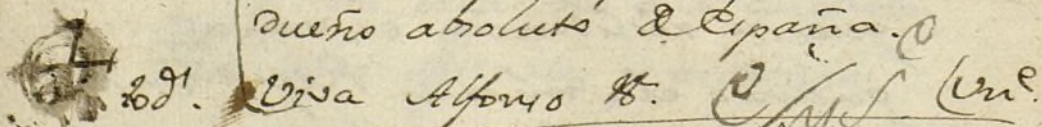 dueño absoluto de España.
Tod.s Viva Alfonso 8. Vn.e